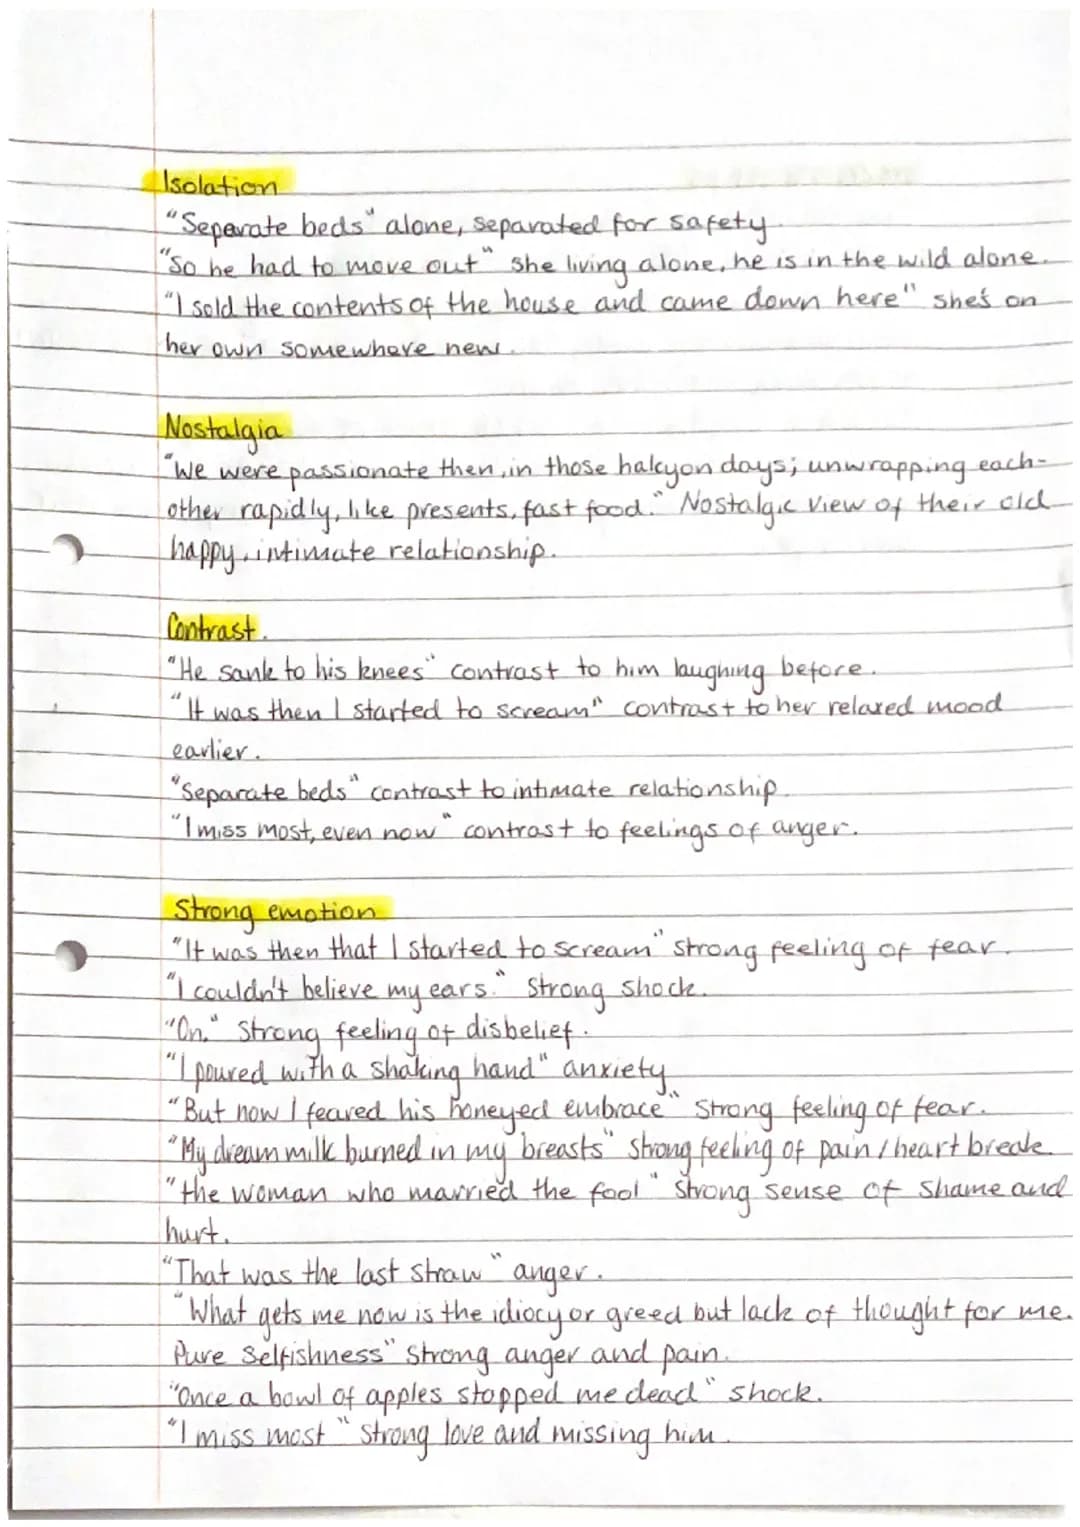 Isolation
"Separate beds" alone, separated for safety.
"So he had to move out" she living alone, he is in the wild alone.
"I sold the contents of the house and came down here" she's on
her own somewhere new.
Nostalgia
"We were passionate then, in those halcyon days; unwrapping each-
other rapidly, like presents, fast food." Nostalgic view of their old
happy, intimate relationship.
Contrast.
"He sank to his knees" contrast to him laughing before.
"It was then I started to scream" contrast to her relaxed mood
earlier.
"Separate beds" contrast to intimate relationship.
"I miss most, even now" contrast to feelings of anger.
Strong emotion
"It was then that I started to scream" strong feeling of fear.
"I couldn't believe my ears." Strong shock.
"On." Strong feeling of disbelief.
"I poured with a shaking hand" anxiety
"But now I feared his honeyed embrace" Strong feeling of fear.
"My dream milk burned in my breasts" strong feeling of pain / heart break.
"the woman who married the fool" strong sense of shame and
hurt.
"That was the last straw" anger.
"What gets me now is the idiocy or greed but lack of thought for me.
Pure Selfishness" Strong anger and pain.
"Once a bowl of apples stopped me dead" shock.
"I miss most" strong love and missing him.